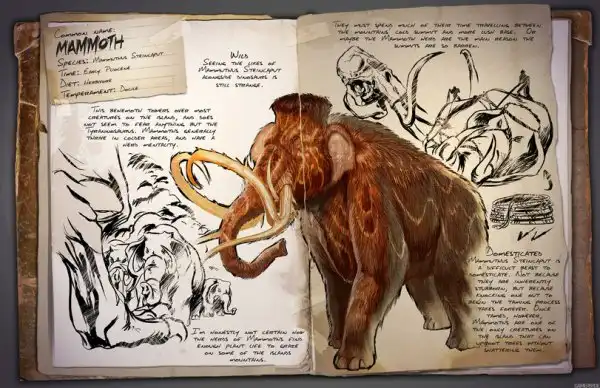 Common name:
MAMMOTH
Species: Mammuthus Steincaput
Time: Early Pliocene
Diet: Herbivore
Temperament: Docile
Wild
Seeing the likes of
Mammuthus Steincaput
alongside dinosaurs is
still strange.
This behemoth towers over most
creatures on the island, and does
not seem to fear anything but the
Tyrannosaurus. Mammoths generally
thrive in colder areas, and have a
herd mentality.
I'm honestly not certain how
the herds of Mammoths find
enough plant life to graze
on some of the islands
mountains.
They must spend much of their time travelling between
the mountains cold summit and more lush base. Or
maybe the Mammoth herd are the main reason the
summits are so barren.
Domesticated
Mammuthus Steincaput is
a difficult beast to
domesticate. Not because
they are inherently
stubborn, but because
knocking one out to
begin the taming process
takes forever. Once
tamed, however,
Mammoths are one of
the only creatures on
the island that can
uproot trees without
shattering them.